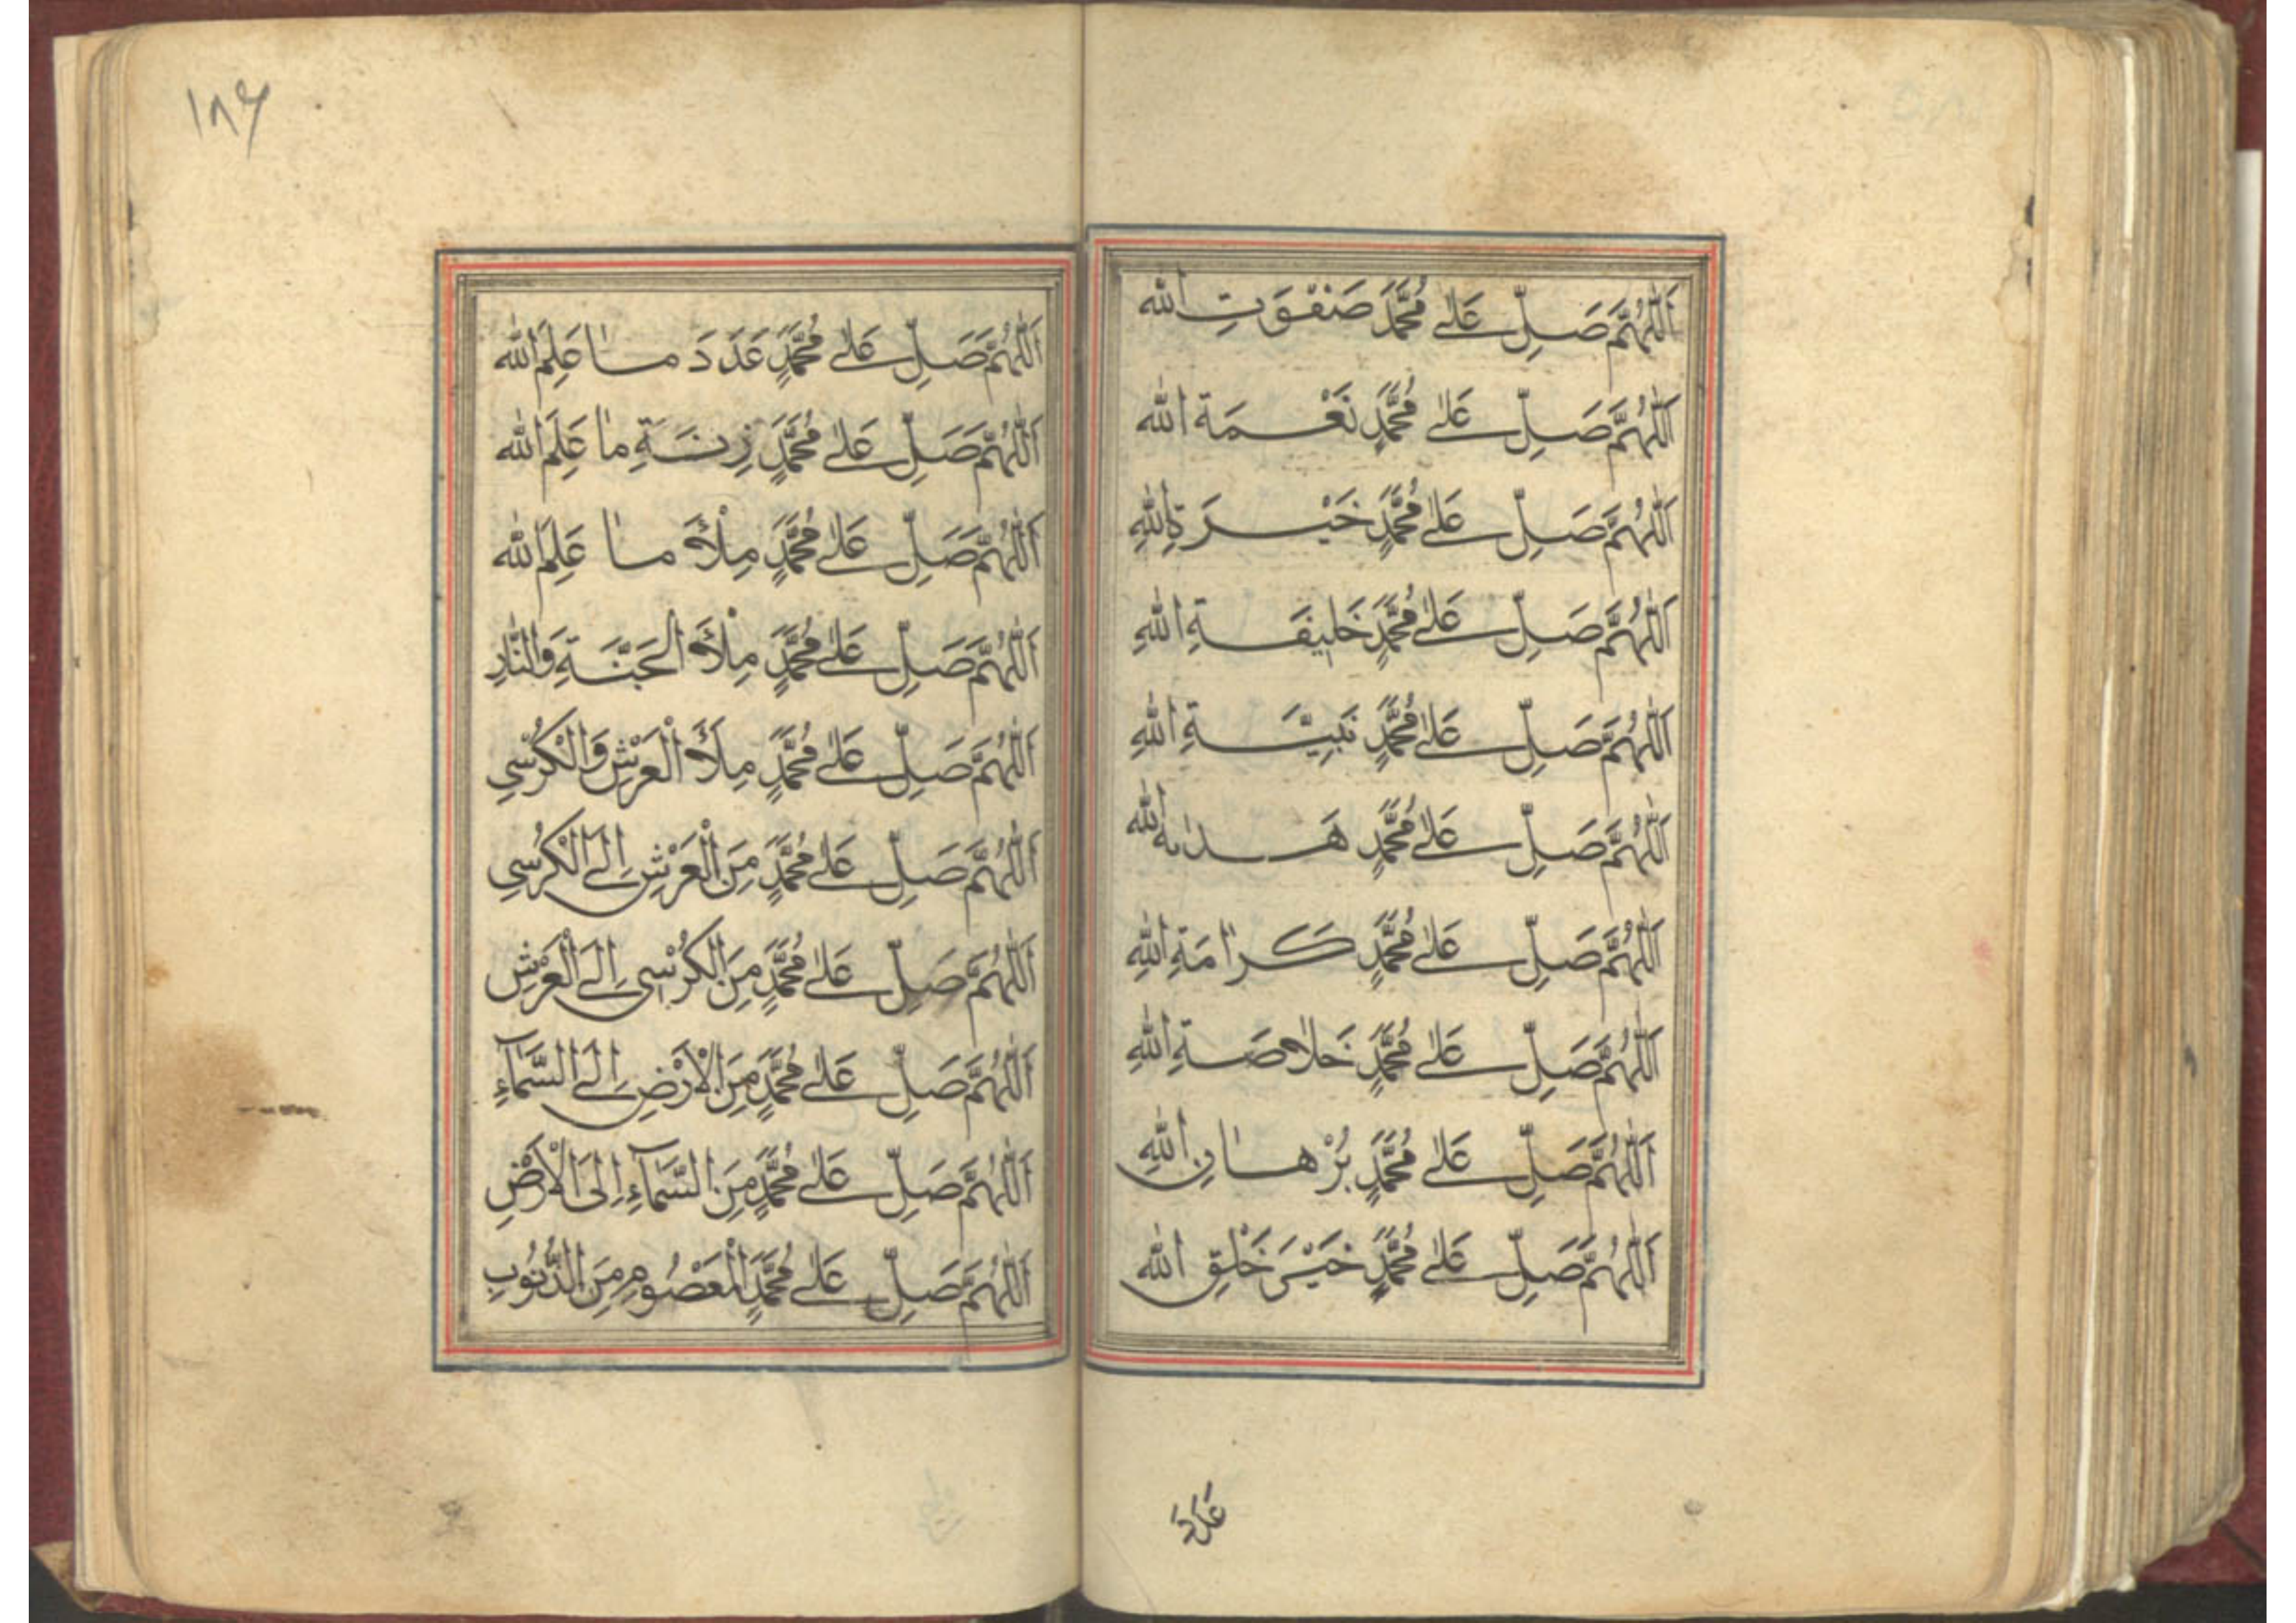 اَللّٰهُمَّ صَلِّ عَلٰى مُحَمَّدٍ صَنْفَوَتِ الله
اَللّٰهُمَّ صَلِّ عَلٰى مُحَمَّدٍ نَعْمَة الله
اَللّٰهُمَّ صَلِّ عَلٰى مُحَمَّدٍ خَيْرَةِ اللهِ
اَللّٰهُمَّ صَلِّ عَلٰى مُحَمَّدٍ خَليفَةِ اللهِ
اَللّٰهُمَّ صَلِّ عَلٰى مُحَمَّدٍ نَبِيَّةِ اللهِ
اَللّٰهُمَّ صَلِّ عَلٰى مُحَمَّدٍ الله
اَللّٰهُمَّ صَلِّ عَلٰى مُحَمَّدٍ كَرامَةِ اللهِ
اَللّٰهُمَّ صَلِّ عَلٰى مُحَمَّدٍ خَلاصَةِ اللهِ
اَللّٰهُمَّ صَلِّ عَلٰى مُحَمَّدٍ بُرْهانِ اللهِ
اَللّٰهُمَّ صَلِّ عَلٰى مُحَمَّدٍ خَيْرَ خَلْقِ الله
عَدَدَ
١٨۶
اَللّٰهُمَّ صَلِّ عَلٰى مُحَمَّدٍ عَدَدَ مٰا عَلِمَ الله
اَللّٰهُمَّ صَلِّ عَلٰى مُحَمَّدٍ زِنَةِ مٰا عَلِمَ الله
اَللّٰهُمَّ صَلِّ عَلٰى مُحَمَّدٍ مِلْأَ مٰا عَلِمَ الله
اَللّٰهُمَّ صَلِّ عَلٰى مُحَمَّدٍ مِلْأَ الْجَنَّةِ وَالنَّارِ
اَللّٰهُمَّ صَلِّ عَلٰى مُحَمَّدٍ مِلَأَ الْعَرْشِ وَالْكُرْسِي
اَللّٰهُمَّ صَلِّ عَلٰى مُحَمَّدٍ مِنَ الْعَرْشِ اِلَى الْكُرْسِي
اَللّٰهُمَّ صَلِّ عَلٰى مُحَمَّدٍ مِنَ الْكُرْسِي اِلَى الْعَرْشِ
اَللّٰهُمَّ صَلِّ عَلٰى مُحَمَّدٍ مِنَ الْاَرْضِ اِلَى السَّمَآءِ
اَللّٰهُمَّ صَلِّ عَلٰى مُحَمَّدٍ مِنَ السَّمَآءِ اِلَى الْاَرْضِ
اَللّٰهُمَّ صَلِّ عَلٰى مُحَمَّدٍ الْمَعْصُومِ مِنَ الذُّنُوبِ